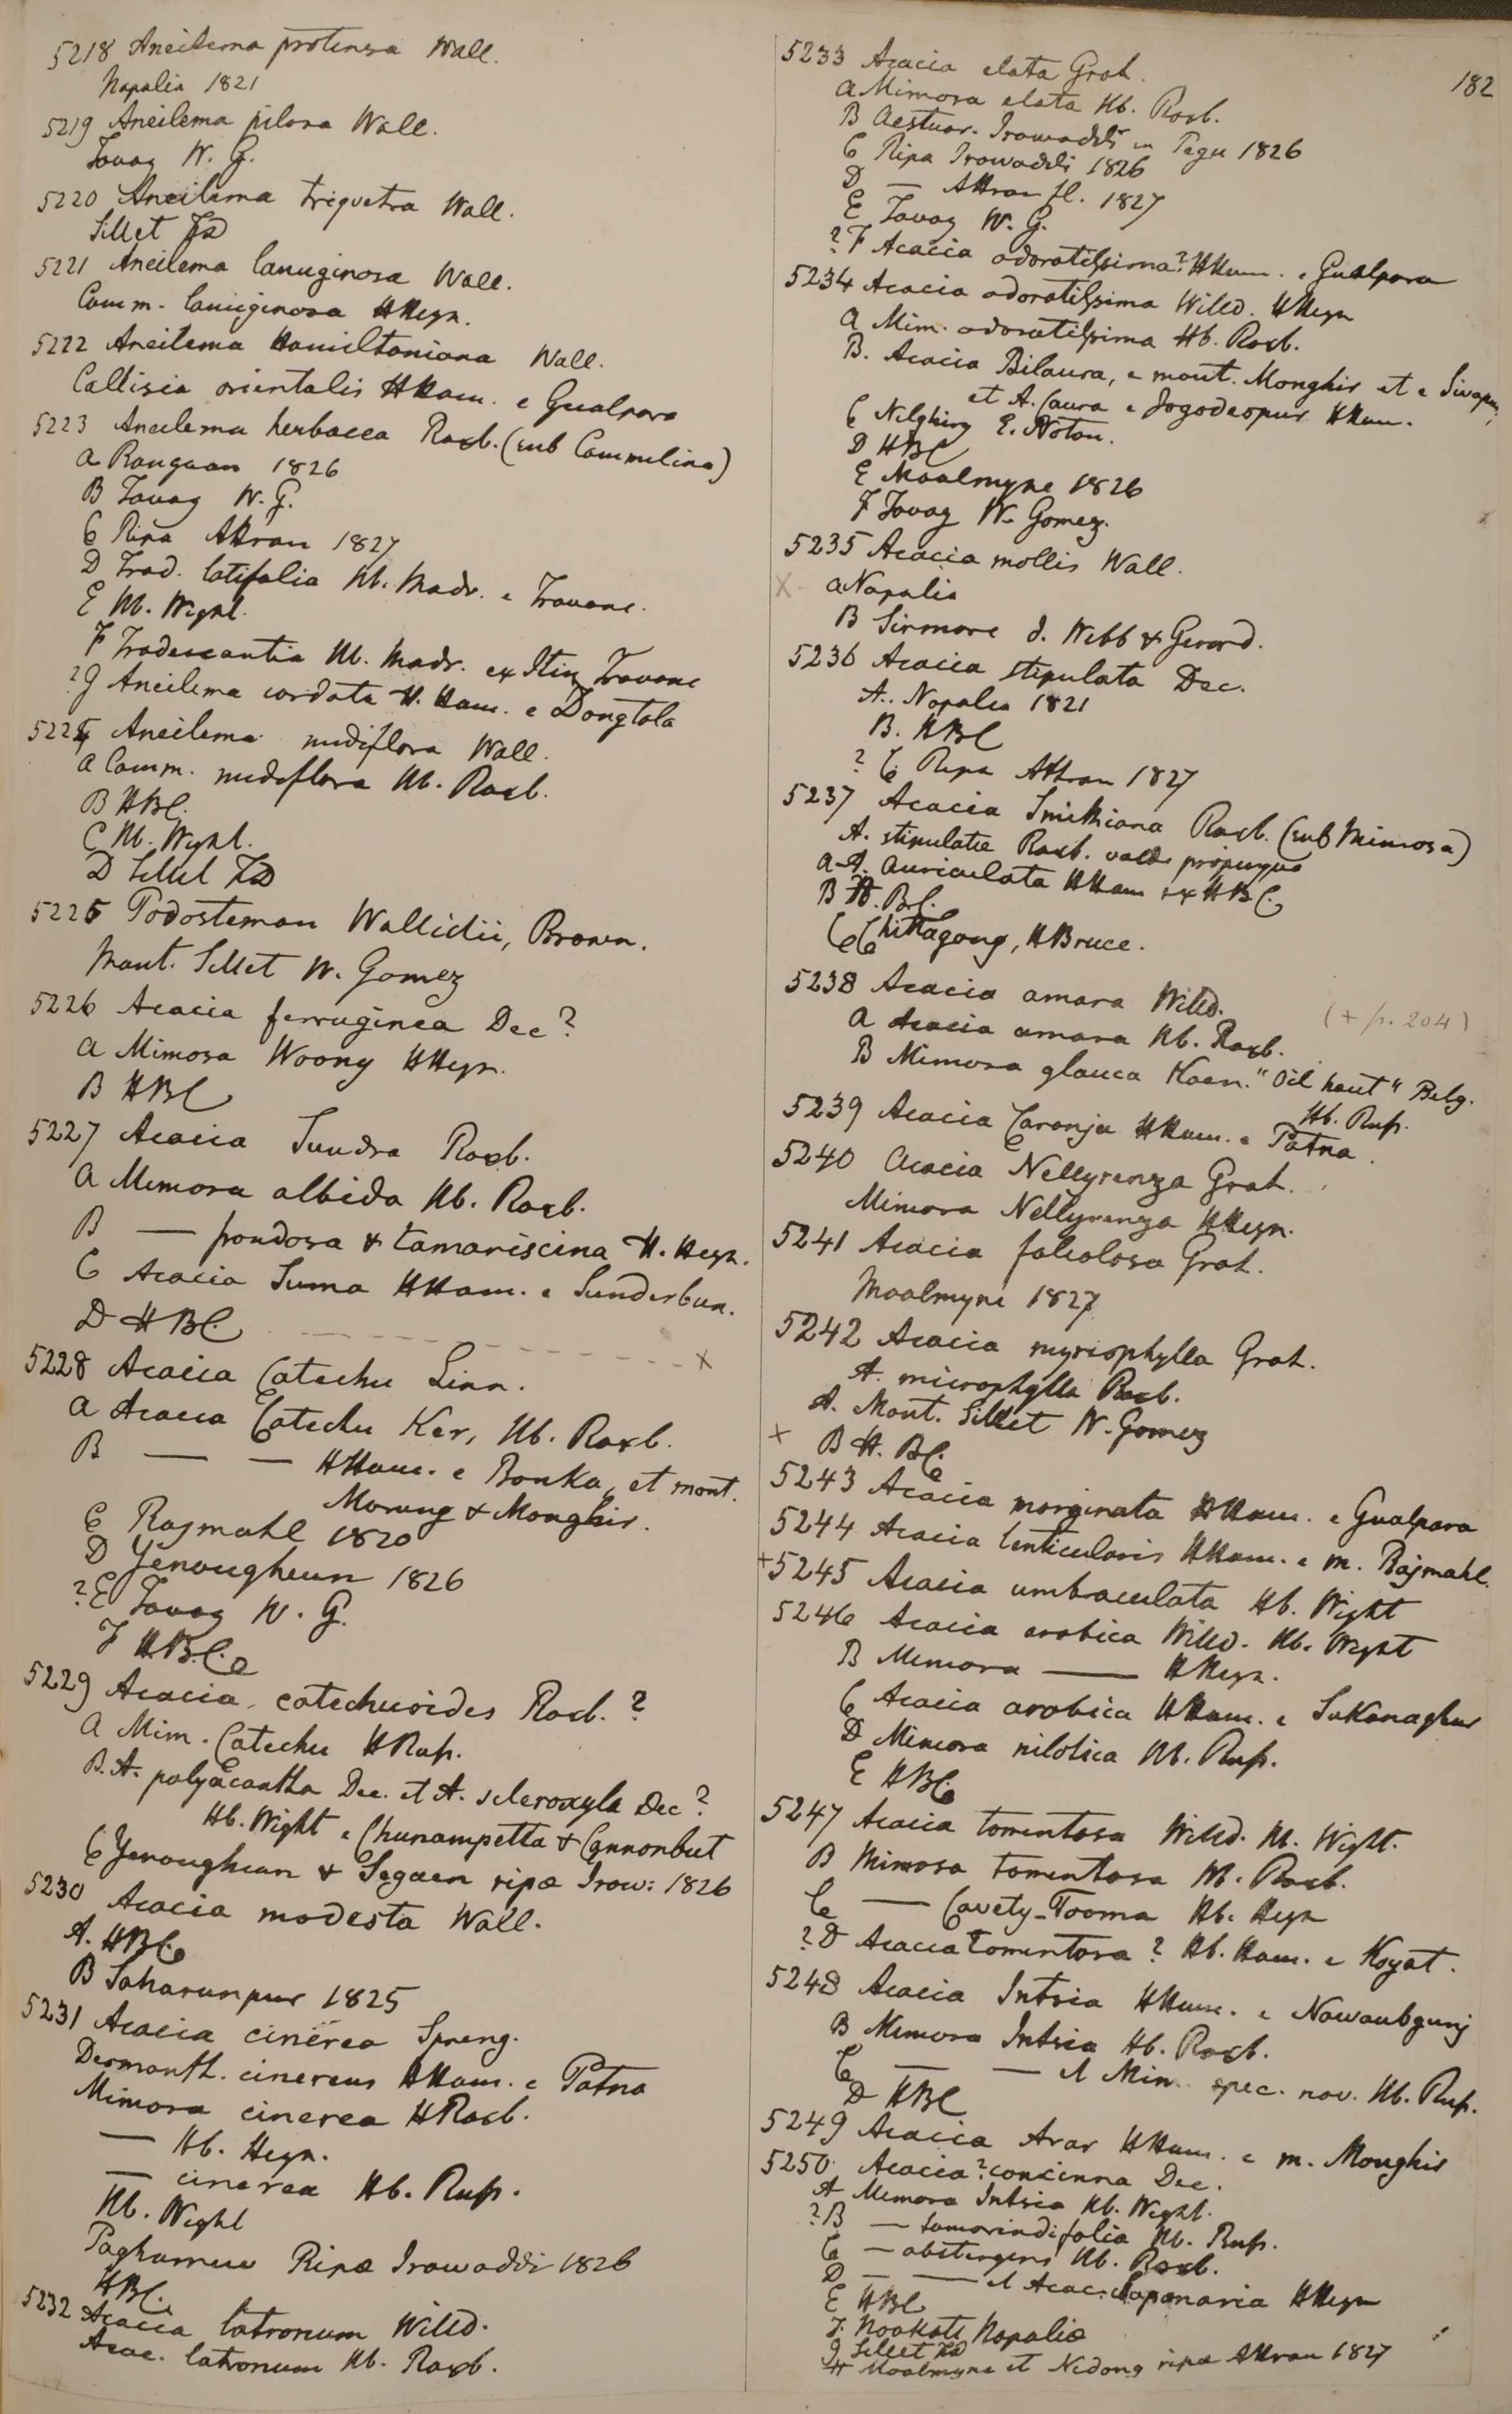 5218 Aneilema protensa Wall.
Napalia 1821
5219 Aneilema pilosa Wall.
Tavoy W. G.
5220 Aneilema triquetra Wall.
Sillet FD
5221 Aneilema lanuginosa Wall.
Comm. lanuginosa HHeyn.
5222 Aneilema Hamiltoniana Wall.
Callisia orientalis HHam. e Gualpara
5223 Aneilema herbacea Roxb. (sub Commelina)
a Rangoon 1826
B Tavoy W. G.
C Ripa Attran 1827
D Trad. latifolia Hb. Madr. e Travanc.
E Hb. Wight.
F Tradescantia Hb. Madr. ex Itin Travanc
?g Aneilema cordata H. Ham. e Dongtola
5224 Aneilema nudiflora Wall.
a Comm. nudiflora Hb. Roxb.
B HBC.
C Hb. Wight.
D Sillet FD
5225 Podostemon Wallichii, Brown.
Mont. Sillet W. Gomez
5226 Acacia ferruginea Dec?
a Mimosa Woony HHeyn.
B HBC
5227 Acacia Sundra Roxb.
a Mimosa albida Hb. Roxb.
B — frondosa & tamariscina H. Heyn.
C Acacia Suma HHam. e Sunderbun.
D HBC.
x
5228 Acacia Catechu Linn.
a Acacia Catechu Ker, Hb. Roxb.
B — — HHam. e Bonka, et mont.
Morung & Monghir.
C Rajmahl 1820
D Yenougheun 1826
?E Tavoy W. G.
F H.B.C.
5229 Acacia catechuoides Roxb. ?
a Mim. Catechu HRup.
B. A. polyacantha Dec. et A. scleroxyla Dec?
Hb. Wight e Chunampetta & Connonbut
C Yenougheun & Segaen ripa Iraw: 1826
5230 Acacia modesta Wall.
A. HBC
B Saharunpur 1825
5231 Acacia cinerea Spreng.
Desmanth. cinereus HHam. e Patna
Mimosa cinerea HRoxb.
— Hb. Heyn.
— cinerea Hb. Rup.
Hb. Wight
Paghamew Ripa Irawaddi 1826
HBC.
5232 Acacia latronum Willd.
Acac. latronum Hb. Roxb.
182
5233 Acacia elata Grah.
a Mimosa elata Hb. Roxb.
B Aestuar. Irawaddi in Pegu 1826
C Ripa Irawaddi 1826
D — Attran fl. 1827
E Tavoy W. G.
?F Acacia odoratissima? HHam. e Gualpara
5234 Acacia odoratissima Willd. HHeyn
a Mim. odoratissima Hb. Roxb.
B. Acacia Bilaura, e mont. Monghir et e Sivapur,
et A. Caura e Jogodeopur HHam.
C Nilghiry E. Noton.
D HBC
E Moalmyne 1826
F Tavoy W. Gomez.
5235 Acacia mollis Wall.
X a Napalia
B Sirmore d. Webb & Gerard.
5236 Acacia stipulata Dec.
A. Napalia 1821
B. HBC
? C Ripa Attran 1827
5237 Acacia Smithiana Roxb. (sub Mimosa)
A. stipulatæ Roxb. valde propinqua
a A. auriculata HHam ex HBC.
B H.B.C.
C Chittagong, HBruce.
5238 Acacia amara Willd.
(+ p. 204)
a Acacia amara Hb. Roxb.
B Mimosa glauca Koen. "Oil haut" Belg.
Hb. Rup.
5239 Acacia Caronja HHam. e Patna.
5240 Acacia Nellyrenza Grah.
Mimosa Nellyrenza HHeyn.
5241 Acacia falcolosa Grah.
Moalmyne 1827
5242 Acacia myriophylla Grah.
A. microphylla Roxb.
A. Mont. Sillet W. Gomez
x B H. BC.
5243 Acacia marginata HHam. e Gualpara
5244 Acacia lenticularis HHam. e m. Rajmahl.
+5245 Acacia umbraculata Hb. Wight
5246 Acacia arabica Willd. Hb. Wight
B Mimosa — HHeyn.
C Acacia arabica HHam. e Sukanaghur
D Mimosa nilotica Hb. Rup.
E HBC
5247 Acacia tomentosa Willd. Hb. Wight.
B Mimosa tomentosa Hb. Roxb.
C — Cavety-Tooma Hb. Heyn
?D Acacia tomentosa ? Hb. Ham. e Koyat.
5248 Acacia Intsia HHam. e Nawaubgunj
B Mimosa Intsia Hb. Roxb.
C — — et Mim. spec. nov. Hb. Rup.
D HBC
5249 Acacia Arar HHam. e m. Monghir
5250 Acacia? concinna Dec.
A Mimosa Intsia Hb. Wight.
?B — tamarindifolia Hb. Rup.
C — abstergens Hb. Roxb.
D — — et Acac. Saponaria HHeyn
E HBC
F. Noakote Napaliæ
g Sillet FD
H Moalmyne et Nedong ripa Attran 1827